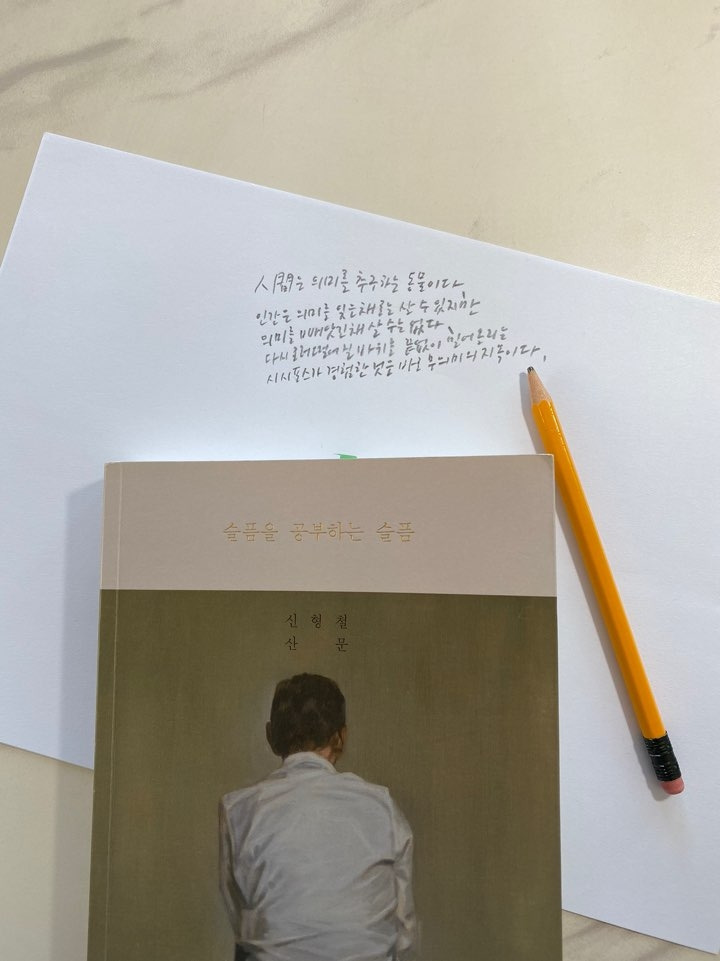 人間는 의미를 추구하는 동물이다
인간은 의미를 잊은채로는 살 수 있지만
의미를 빼앗긴채 살 수는 없다
다시 굴러떨어질 바위를 끝없이 밀어올리는
시시포스가 경험한 것은 바로 무의미의 지옥이다.
슬픔을 공부하는 슬픔
신형철
산문